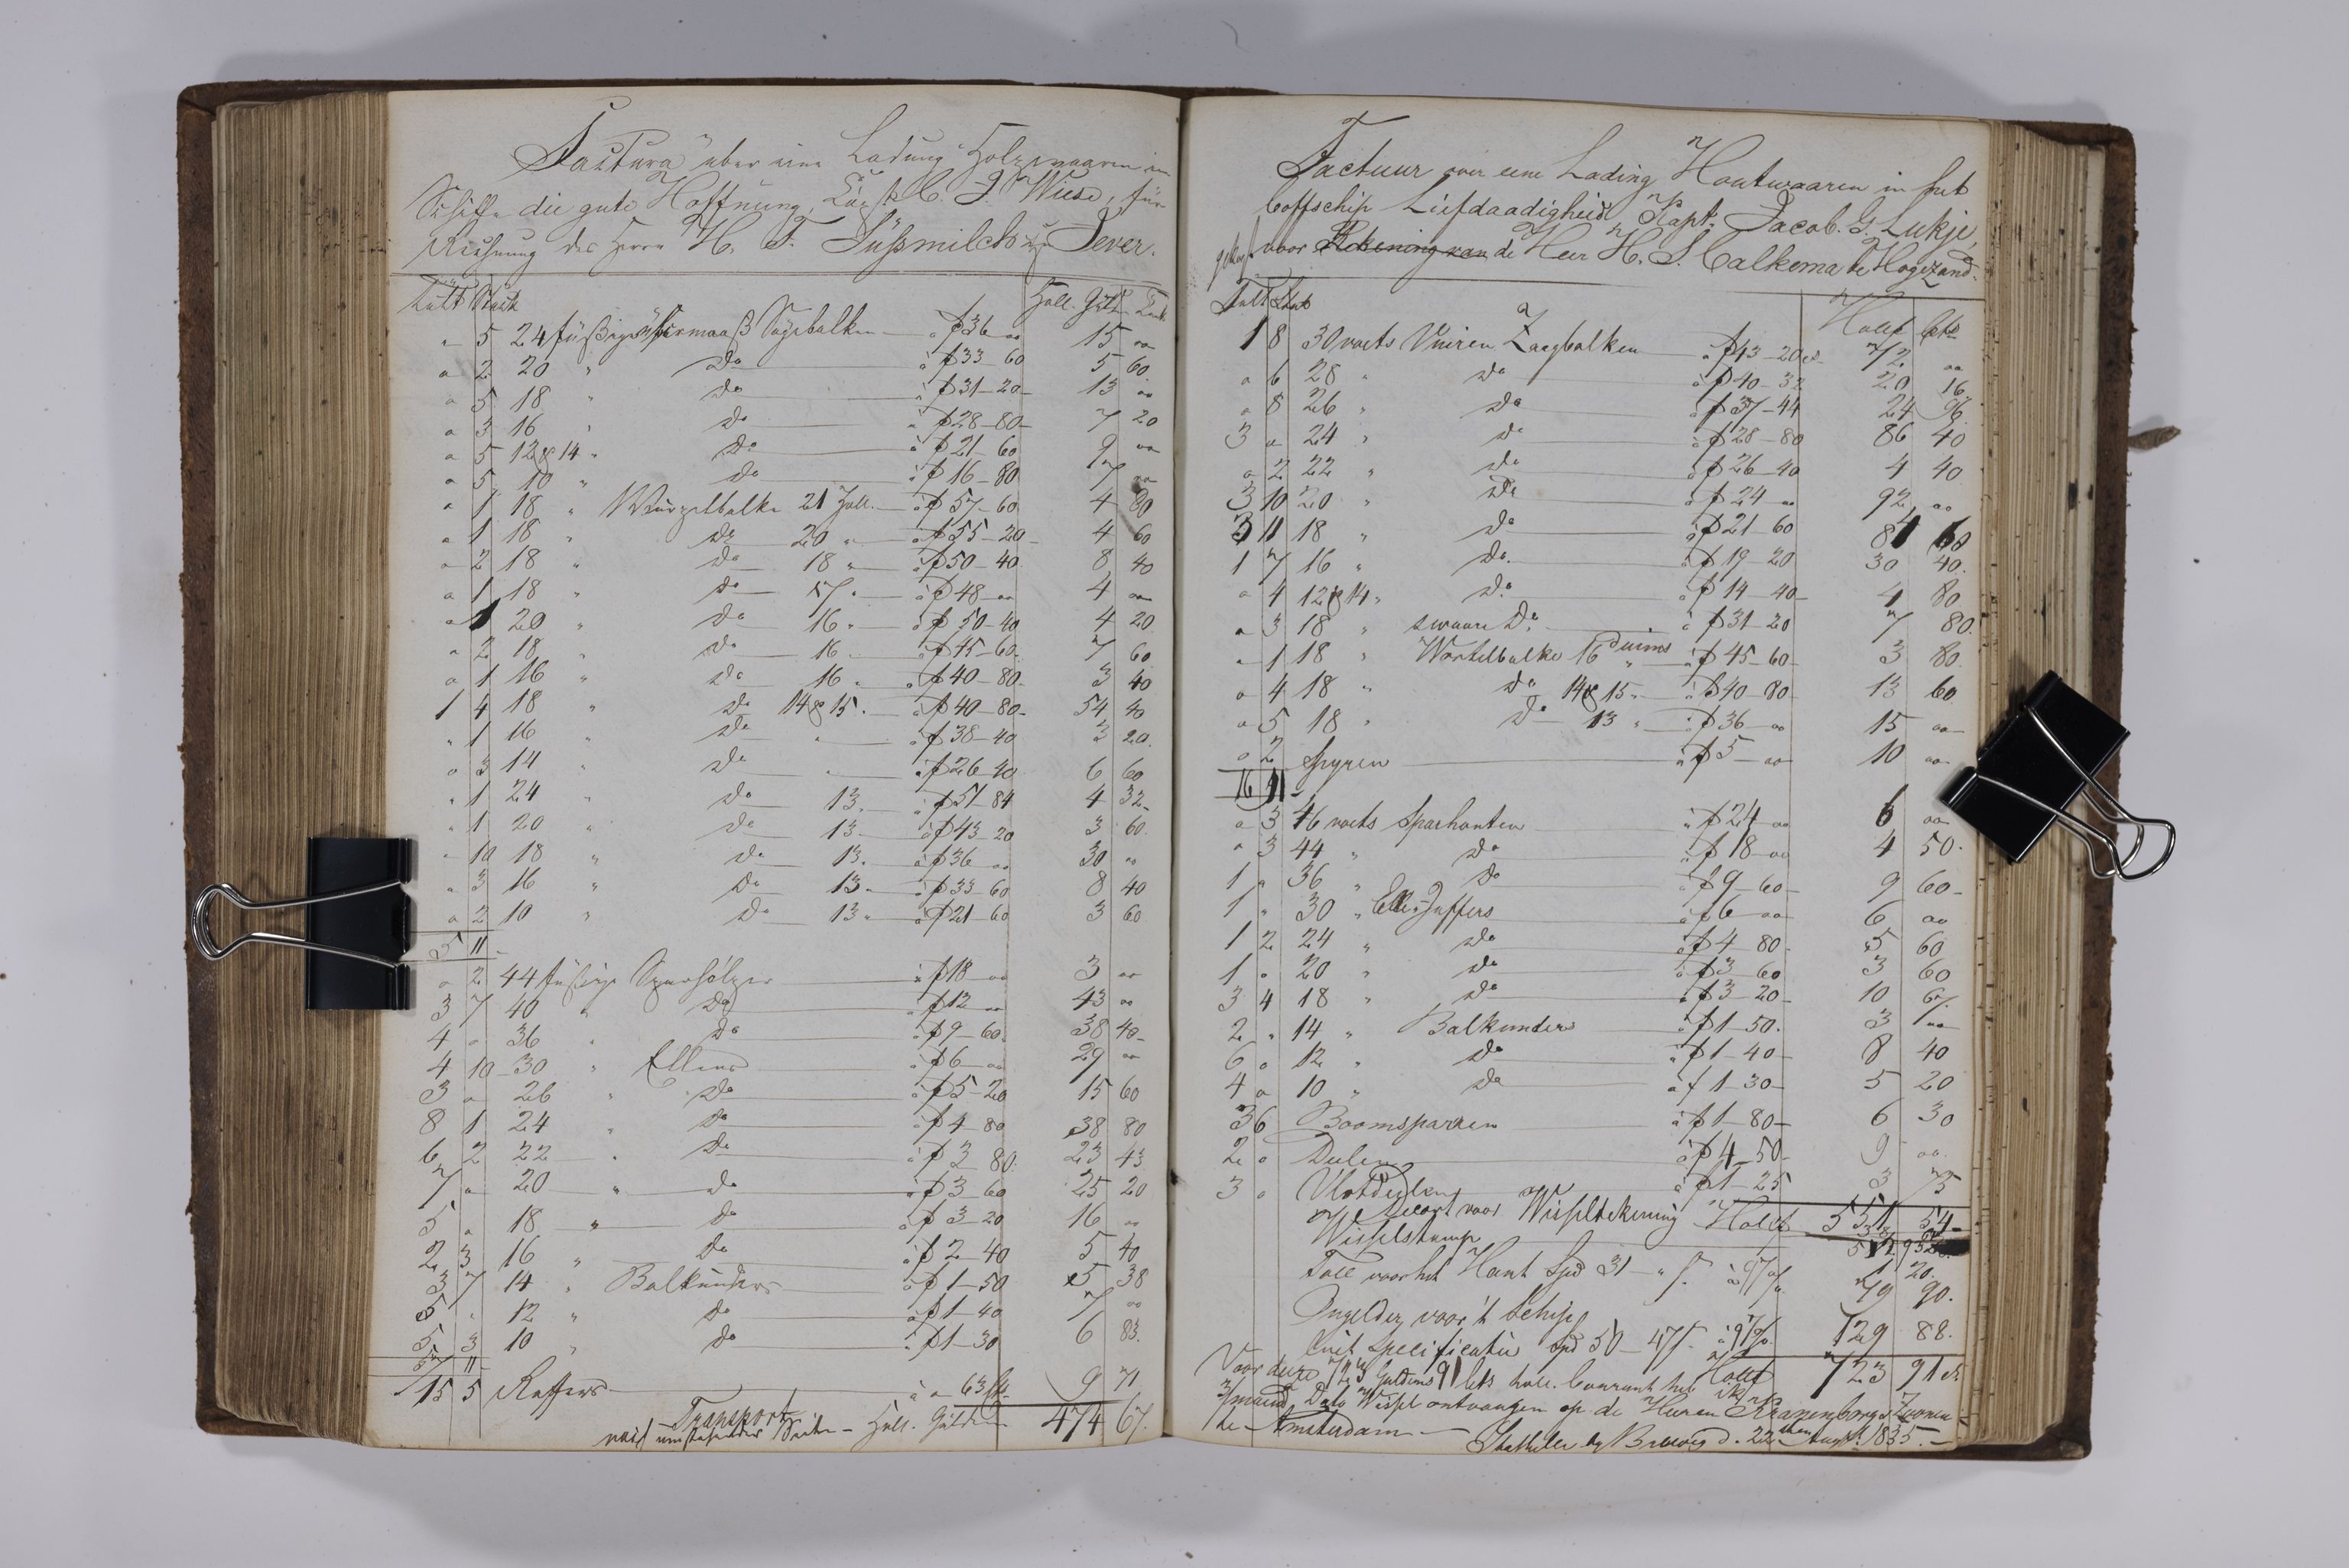 Factura über eine Ladung Holzwaaren im
Schiffe die gute Hoffnung, Capt. C. J. Wiese, für
Rechnung des Herrn H. F. Süssmilch zu Jever.
Tult Stück Holl. Guld.
" 5 24 füßige Sägebalken à f 36 " 15 "
" 2 20 " Do à f 33-60 5 60
" 5 18 " Do à f 31-20 13 "
" 3 16 " Do à f 28-80 7 20
" 5 12 & 14 " Do à f 21-60 9 "
" 5 10 " Do à f 16-80 7 "
" 1 18 " Wurzelbalke 21 Zoll. à f 57-60 4 80
" 1 18 " Do 20 " à f 55-20 4 60
" 2 18 " Do 18 " à f 50-40 8 40
" 1 18 " Do 17 " à f 48 " 4 "
" 1 20 " Do 16 " à f 50-40 4 20
" 2 18 " Do 16 " à f 45-60 7 60
" 1 16 " Do 16 " à f 40-80 3 40
1 4 18 " Do 14 & 15 " à f 40-80 54 40
" 1 16 " Do " à f 38-40 3 20
" 3 14 " Do " à f 26-40 6 60
" 1 24 " Do 13 " à f 51-84 4 32
" 1 20 " Do 13 " à f 43-20 3 60
" 10 18 " Do 13 " à f 36 " 30 "
" 3 16 " Do 13 " à f 33-60 8 40
" 2 10 " Do 13 " à f 21-60 3 60
5 11
" 2 44 füßige Sparhölzer à f 18 " 3 "
3 7 40 " Do à f 12 " 43 "
4 " 36 " Do à f 9-60 38 40
4 10 30 " Ellens à f 6 " 29 "
3 " 26 " Do à f 5-20 15 60
8 1 24 " Do à f 4-80 38 80
6 2 22 " Do à f 3 80 23 43
7 " 20 " Do à f 3-60 25 20
5 " 18 " Do à f 3-20 16 "
2 3 16 " Do à f 2-40 5 40
3 7 14 " Balkunders à f 1-50 5 38
5 " 12 " Do à f 1-40 7 "
5 3 10 " Do à f 1-30 6 83
57 11
15 5 Raffers à " 63 9 71
Transport
nach umstehender Seite - Holl. Gulden 474 67.
Factuur over eene Lading Houtwaaren in het
Coffschip Liefdaadigheid, Kapt. Jacob. G. Lukje,
voor Rekening van de Heer H. S. Calkema te Hogezand.
Tult Stuk Holl f Cts
1 8 30 voets Vuiren Zaagbalken à f 43-20 72 "
" 6 28 " Do à f 40-32 20 16
" 8 26 " Do à f 37-44 24 96
3 " 24 " Do à f 28-80 86 40
" 2 22 " Do à f 26-40 4 40
3 10 20 " Do à f 24 " 92 "
3 11 18 " Do à f 21-60 84 60
1 7 16 " Do à f 19-20 30 40
" 4 12 & 14 " Do à f 14-40 4 80
" 3 18 " swaare Do à f 31-20 7 80
" 1 18 " Wortelbalke 16 Duims à f 45-60 3 80
" 4 18 " Do 14 & 15 " à f 40-80 13 60
" 5 18 " Do 13 " à f 36 " 15 "
" 2 Spyren à f 5 " 10 "
16 11
" 3 46 voets Sparhouten à f 24 " 6 "
" 3 44 " Do à f 18 " 4 50
1 " 36 " Do à f 9-60 9 60
1 " 30 " Ellen Juffers à f 6 " 6 "
1 2 24 " Do à f 4-80 5 60
1 " 20 " Do à f 3-60 3 60
3 4 18 " Do à f 3-20 10 67
2 " 14 " Balkunders à f 1-50 3 "
6 " 12 " Do à f 1-40 8 40
4 " 10 " Do à f 1-30 5 20
3 6 Boomsparren à f 1-80 6 30
2 " Deelen à f 4-50 9 "
3 " Vlotdeelen à f 1-25 3 75
Decort voor Wisseltekening Holl f 551 54
Wisselstemp
Toll voor het Hout Spd 31
Ongelder voor 't Schip 49 90.
luit Specificatie Spd 50 - 47 129 88.
Holl f 723 91
Voor deze 723 Guldens 91 Cets holl. Courant heb ik
3/maand Dato Wissel ontvangen op de Heeren Kranenborg & Zoonen
te Amsterdam - by Brevig d. 22 Augt. 1835. -